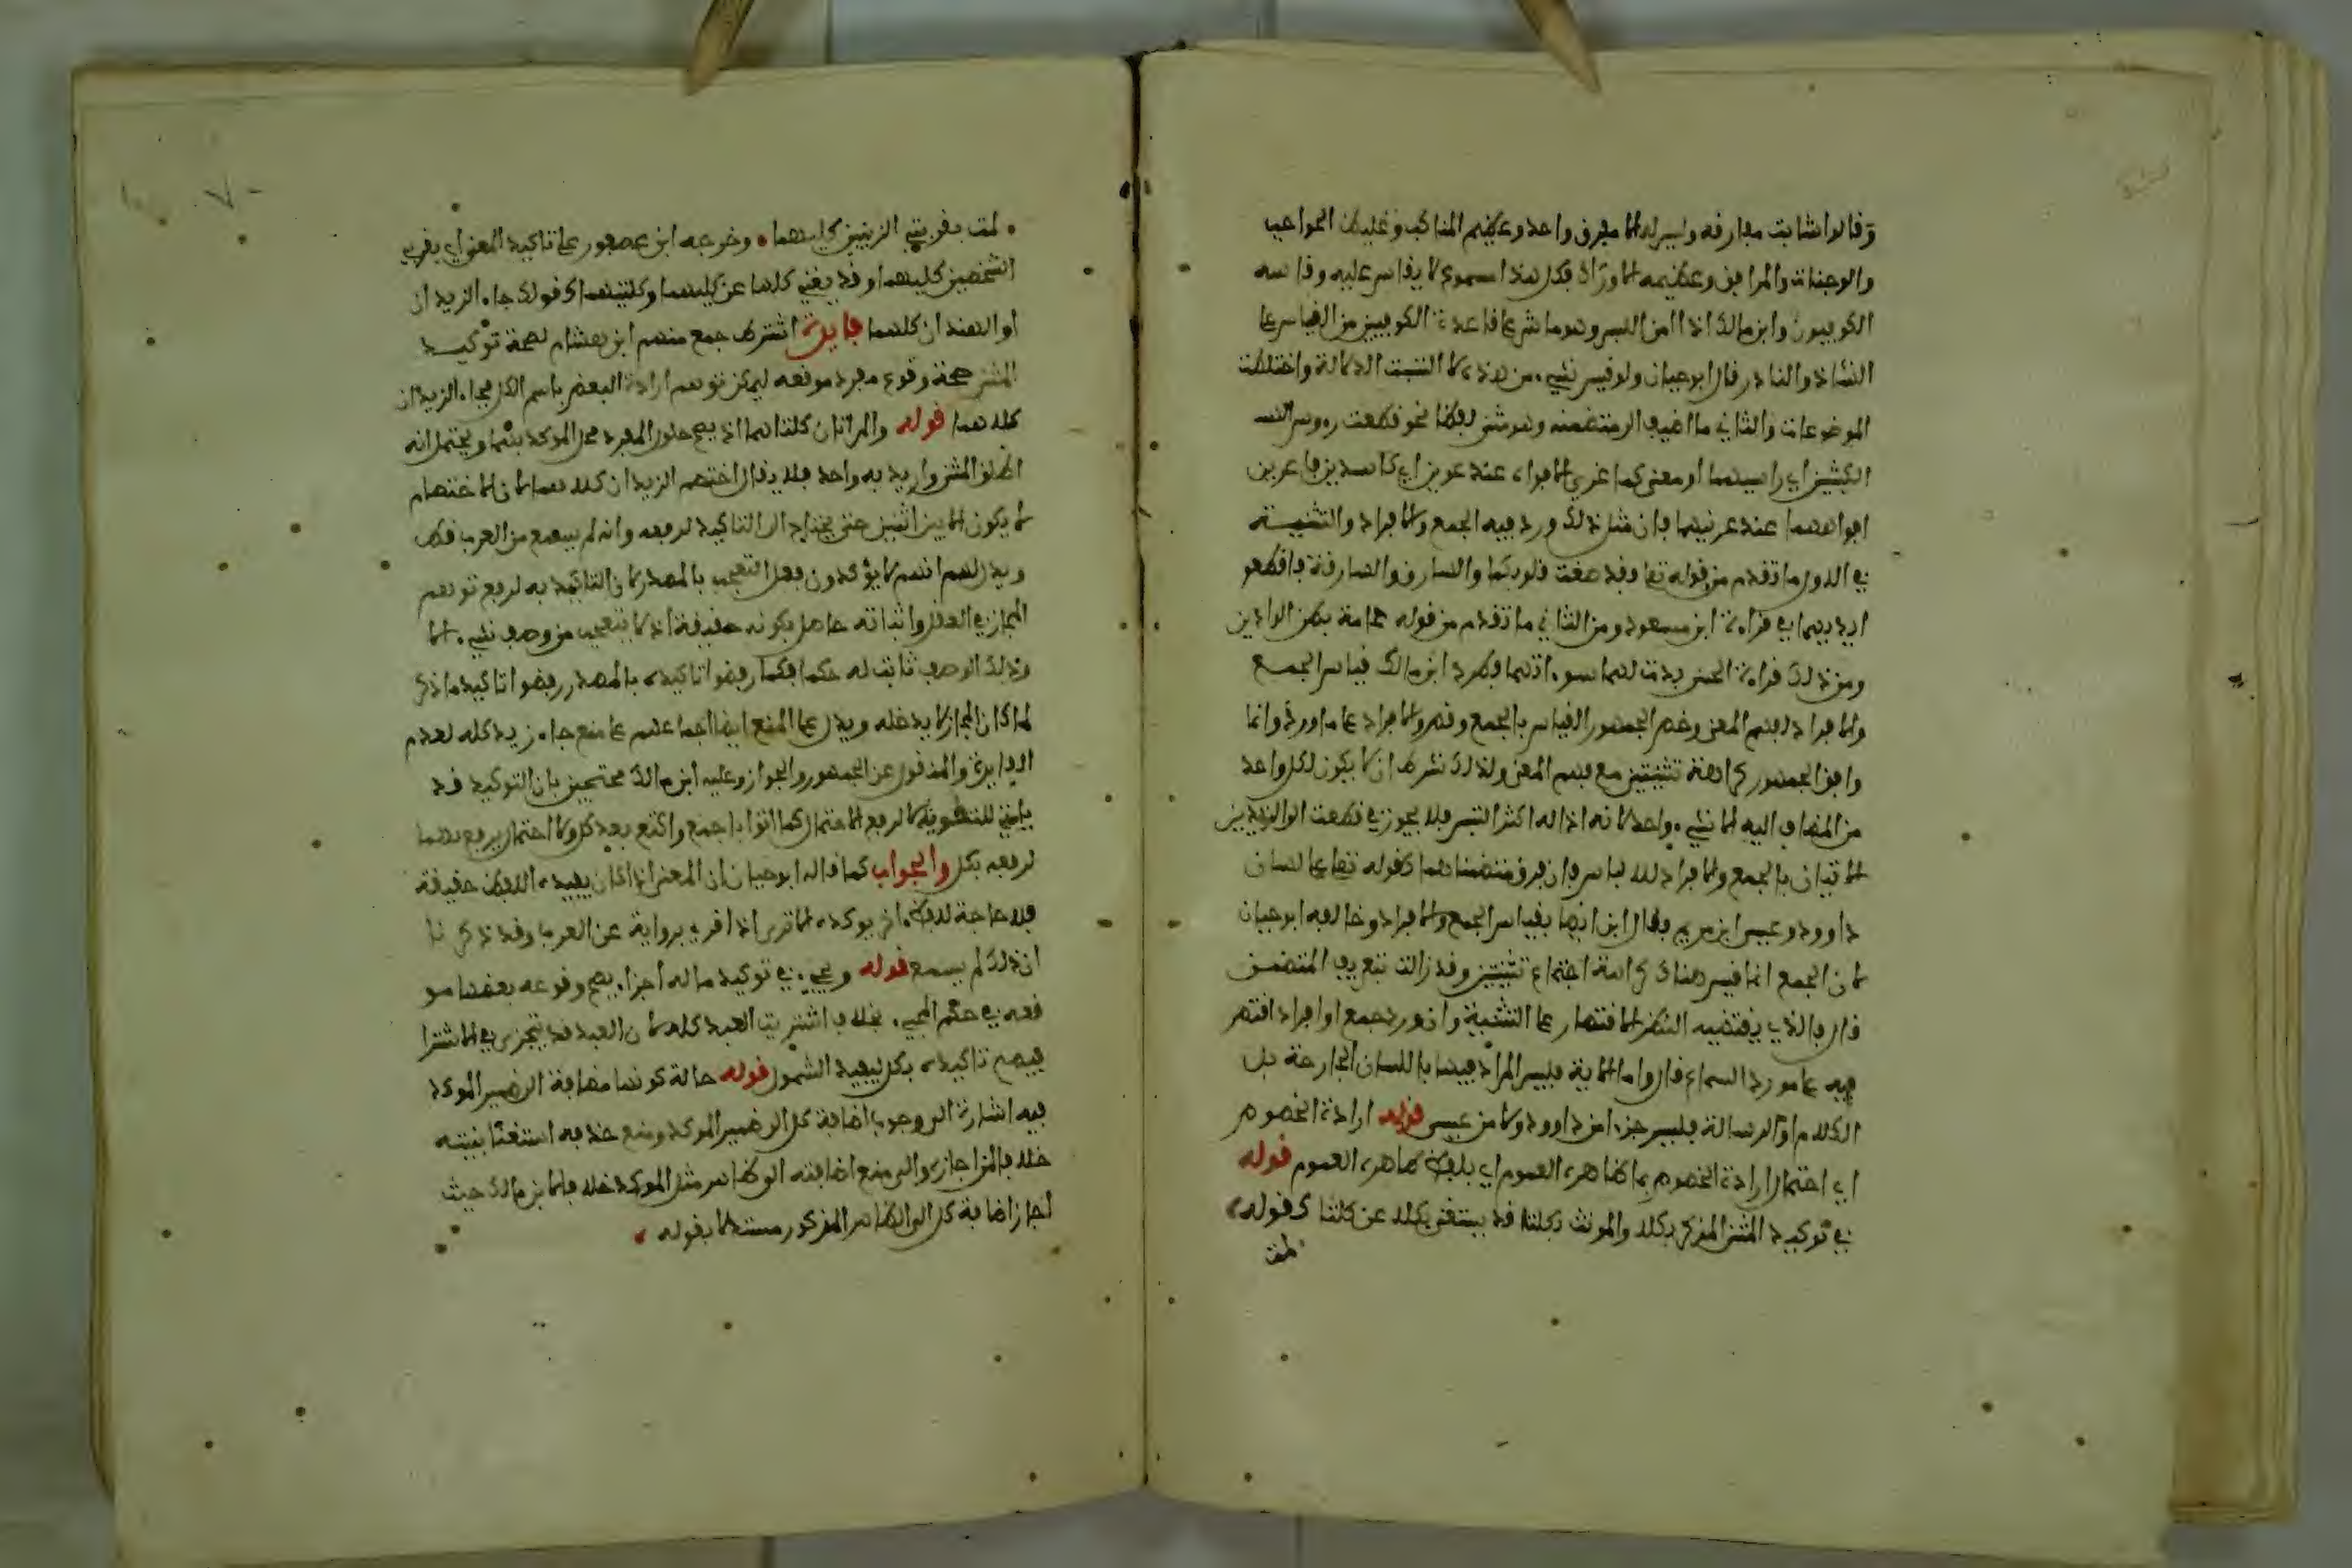 وقالوا شابت مفارقه وليس له الا مفرق واحد وعظيم المناكب وغليظ الحواجب
والوجنات والمرافق وعظيمة الاوراك فكل هذا مسموع لا يقاس عليه وقاسه
الكوفيون وابن مالك اذا امن اللبس وهو ماش على قاعدة الكوفيين من القياس على
الشاذ والنادر قال ابو حيان ولو قيس شيء من هذا لالتبست الدلالة واختلطت
الموضوعات والثاني ما اضيف الى متضمنه وهو مثنى لفظا نحو قطعت رءوس
الكبشين اي راسيهما او معنى كما غرى الافواه عند عرين اي كاسدين فاغرين
افواههما عند عرنيهما فان مثل ذلك ورد فيه الجمع والافراد والتثنية
في الاول ما تقدم من قوله تعا فقد صغت قلوبكما والسارق والسارقة فاقطعو
ايديهما في قراءة ابن مسعود ومن الثاني ما تقدم من قوله حمامة بطن الواديين
ومن ذلك قراءة الحسن بدت لهما سوءاتهما وطرد ابن مالك قياس الجمع
والافراد لفهم المعنى وخص الجمهور القياس بالجمع وقصروا الافراد على ما ورد وانما
وافق الجمهور كراهة تثنيتين مع فهم المعنى ولذلك شرط ان لا يكون لكل واحد
من المضاف اليه الا شيء واحد لانه اذا له اكثر التبس فلا يجوز في قطعت اذني الزيدين
الاتيان بالجمع والافراد للالباس فان فرق متضمناهما كقوله تعا على لسان
داوود وعيسى ابن مريم فقال ابن ايضا بقياس الجمع والافراد وخالفه ابو حيان
لان الجمع انما قيس هناك كراهة اجتماع تثنيتين وقد زالت بتعريف المتضمن
قال فالذي يقتضيه النظر الاقتصار على التثنية وان ورد جمع او افراد اقتصر
فيه على مورد السماع قال واما الاية فليس المراد فيها باللسان الجارحة بل
الكلام او الرسالة فليس جزءا من داوود ولا من عيسى قوله ارادة الخصوص
اي احتمال ارادة الخصوص بما ظاهره العموم اي بلفظ ظاهره العموم قوله
في توكيد المثنى المذكر بكلا والمونث بكلتا قد يستغنى بكلا عن كلتا كقوله
لمت
لمت بقربتي الزينبين كليهما وخرجه ابن عصفور على تاكيد المعنى اي بقريبي
الشخصين كليهما وقد يغني كلها عن كليهما وكلتيهما كقولك جاء الزيدان
او الهندان كلهما فايدة اشترط جمع منهم ابن هشام لصحة توكيد
المثنى صحة وقوع مفرد موقعه ليمكن توهم ارادة البعض باسم الكل فجاء الزيدان
كلاهما قوله والمراتان كلتاهما اذ يصح حلول المفرد محل الموكد بهما ويحتمل انه
اطلق المثنى واريد به واحد فلا يقال اختصم الزيدان كلاهما لان الاختصام
لا يكون الا بين اثنين حتى يحتاج الى التاكيد لرفعه وانه لم يسمع من العرب قط
ويدل لهم انهم لا يؤكدون فعل التعجب بالمصدر لان التاكيد به لرفع توهم
المجاز في الفعل واثباته حاصل بكونه حقيقة اذ لا يتعجب من وصف شيء الا
وذلك الوصف ثابت له حكما فكما رفضوا تاكيده بالمصدر رفضوا تاكيد ما ذكر
لما كان المجاز لا يدخله ويدل على المنع ايضا اجماعهم على منع جاء زيد كله لعدم
الفايدة والمنقول عن الجمهور الجواز وعليه ابن مالك محتجين بان التوكيد قد
ياتي للتقوية لا لرفع الاحتمال كما اتوا باجمع واكتع بعد كل ولا احتمال يرفع بهما
لرفعه بكل والجواب كما قاله ابو حيان ان المعنى اذا كان يفيده اللفظ حقيقة
فلا حاجة للفظ اخر يوكده الا ترى اذا قوي برواية عن العرب وقد ذكرنا
ان ذلك لم يسمع قوله ويجيء في توكيد ماله اجزاء يصح وقوعه بعضها مو
قعه في حكم المجيء بخلاف اشتريت العبد كله لان العبد قد يتجزى في الاشترا
فيصح تاكيده بكل ليفيد الشمول قوله حالة كونها مضافة الى ضمير الموكد
فيه اشارة الى وجوب اضافة كل الى ضمير الموكد ومنع حذفه استغنا بنيته
خلافا لمن اجازه والى منع اضافته الى ظاهر مثل الموكد خلافا لابن مالك حيث
اجاز اضافة كل الى الظاهر المذكور مستدلا بقوله